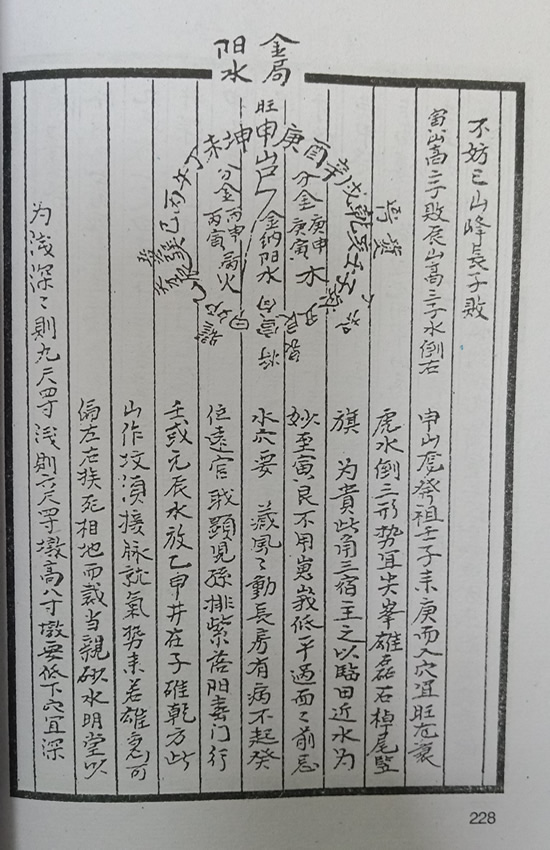 金局
阳水
不妨巳山峰長子敗
寅山高二子敗辰山高三子水倒右
申山庹發祖壬子来庚而入穴宜旺左裏
庬水倒三形势宜尖峯雄磊石棹尾竖
旗 为貴此角三宿主之以臨田近水为
妙至寅艮不用崽峩低平過面々前忌
水穴要 藏風々動長房有病不起癸
位遠官戝顕見孫排紫荅阳春门行
壬或无辰水放乙申井在子碓乾方此
山作坟湏接脉就氣势来若雄急可
偏左右挨死相地而裁当親砂水明堂以
为浅深々則九尺四寸浅則六尺四寸墩高八寸墩要低下穴宜深
旺
申山
丁未坤 庚酉辛戌乾亥壬子
丙午
巳
分金
丙申
丙寅
病火
金纳阳水
分金
庚申
庚寅
木
向寅
艮
228